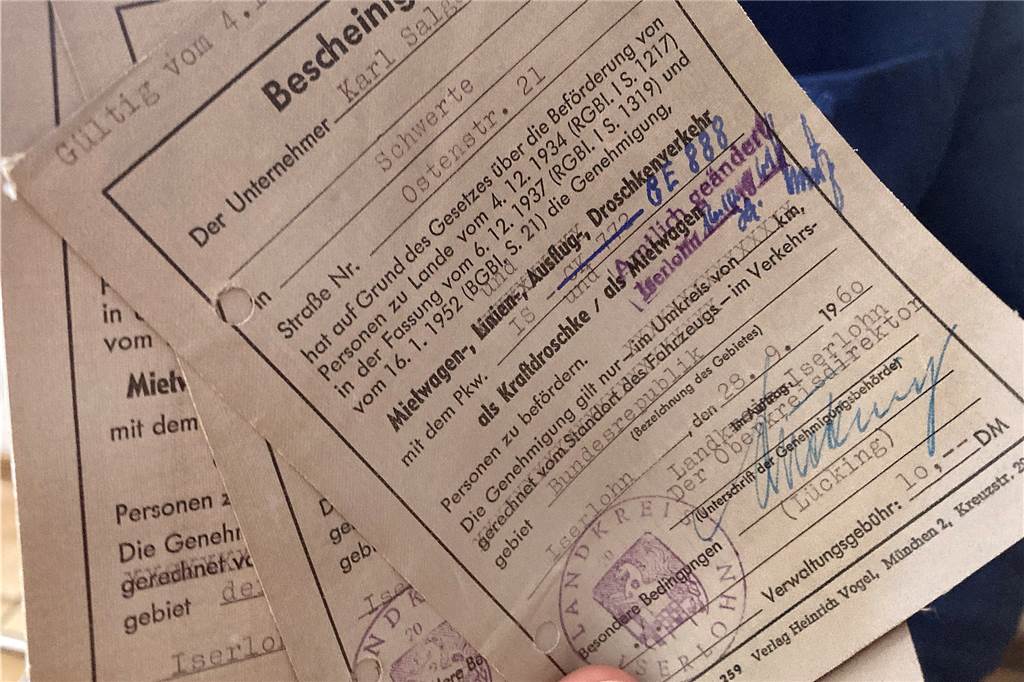 Gültig vom 4.
Bescheinig
Der Unternehmer Karl Salg
in Schwerte
Straße Nr. Ostenstr. 21
hat auf Grund des Gesetzes über die Beförderung von
Personen zu Lande vom 4. 12. 1934 (RGBl. I S. 1217)
in der Fassung vom 6. 12. 1937 (RGBl. I S. 1319) und
vom 16. 1. 1952 (BGBl. S. 21) die Genehmigung,
und
Mietwagen-, Linien-, Ausflug-, Droschkenverkehr
mit dem Pkw. IS CK 772 BE 888
und
Amtlich geändert
Iserlohn
als Kraftdroschke / als Mietwagen
Personen zu befördern.
Die Genehmigung gilt nur im Umkreis von km,
gerechnet vom Standort des Fahrzeugs – im Verkehrs-
gebiet Bundesrepublik
(Bezeichnung des Gebietes)
Iserlohn, den 28. 9. 1960
Landkreis Iserlohn
Der Oberkreisdirektor
Im Auftrag:
(Unterschrift der Genehmigungsbehörde)
(Lücking)
Besondere Bedingungen
Verwaltungsgebühr: 10,-- DM
LANDKREIS ISERLOHN
20
259 Verlag Heinrich Vogel, München 2, Kreuzstr.
in
vom
mit dem
Personen z
Die Genehr
gerechnet vo
gebiet de
Iserlo
ge
gebi
Ise
20